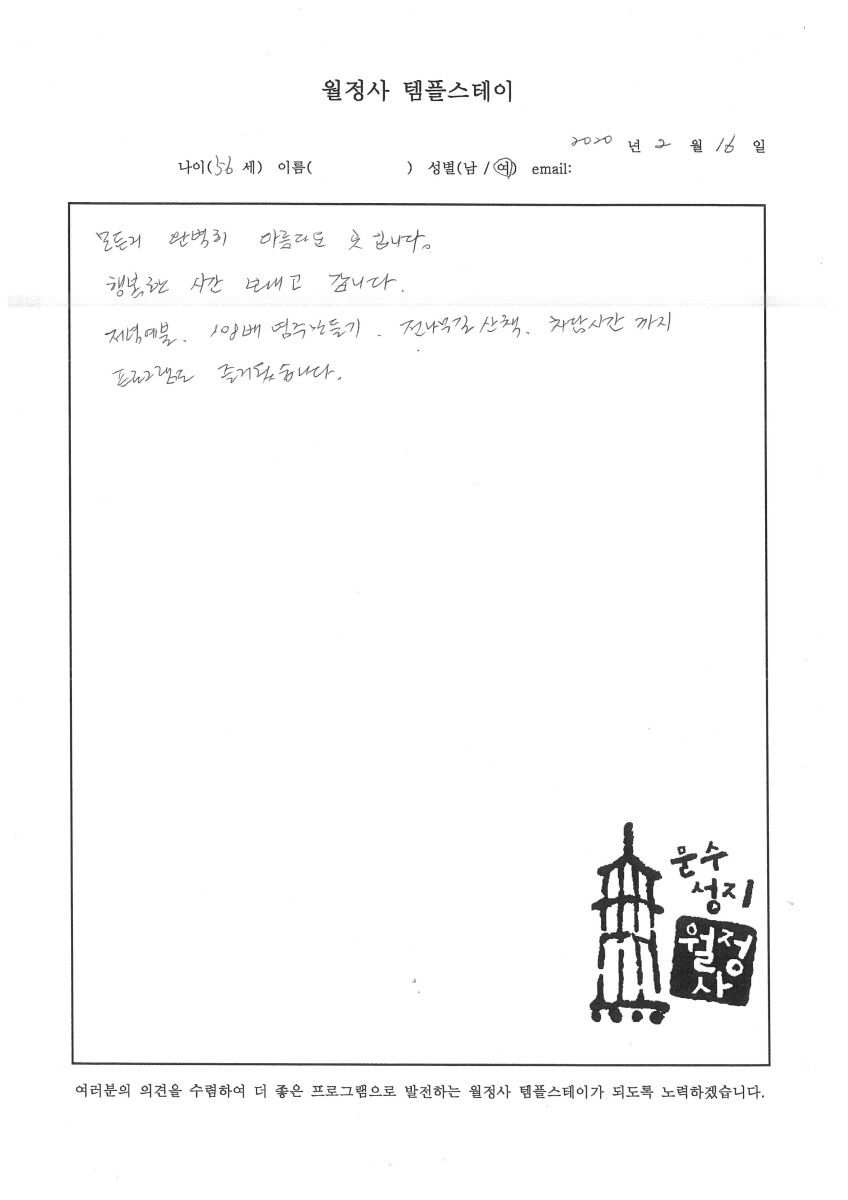 월정사 템플스테이
2020 년 2 월 16 일
나이(56 세) 이름( ) 성별(남 / 여) email:
모든게 완벽히 아름다운 곳 입니다.
행복한 시간 보내고 갑니다.
저녁예불. 108배 염주만들기. 전나무길 산책. 차담시간 까지
프로그램도 즐거웠습니다.
문수
성지
월정
사
여러분의 의견을 수렴하여 더 좋은 프로그램으로 발전하는 월정사 템플스테이가 되도록 노력하겠습니다.